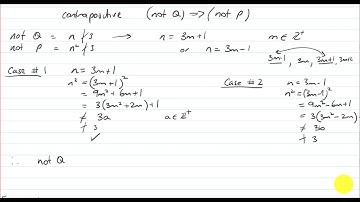 contrapositive (not Q) => (not P)
not Q = n ∤ 3 → n = 3m+1 m ∈ Z⁺
not P = n² ∤ 3 or n = 3m-1 3m-1, 3m, 3m+1, 3m+2
Case #1 n = 3m+1
n² = (3m+1)²
= 9m² + 6m + 1
= 3(3m² + 2m) + 1
≠ 3a a ∈ Z⁺
∤ 3
✓
Case #2 n = 3m-1
n² = (3m-1)²
= 9m² - 6m + 1
= 3(3m² - 2m)
≠ 3b
∤ 3
∴ not Q